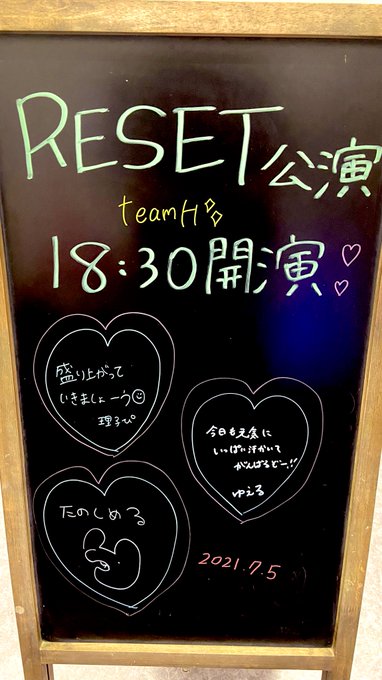 RESET公演
teamH
18:30開演
盛り上がって
いきましょーう
理子ぴ
今日も元気に
いっぱい汗かいて
がんばるぞー!!
ゆえる
たのしめる
2021.7.5